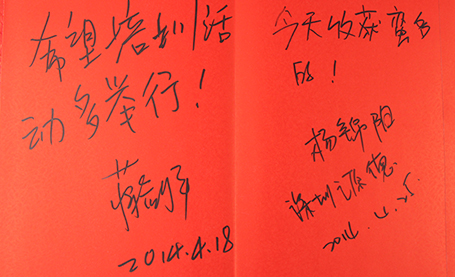 希望培训活
动多举行！
2014.4.18
今天收获蛮多
的！
杨锦阳
深圳源德
2014.4.25.